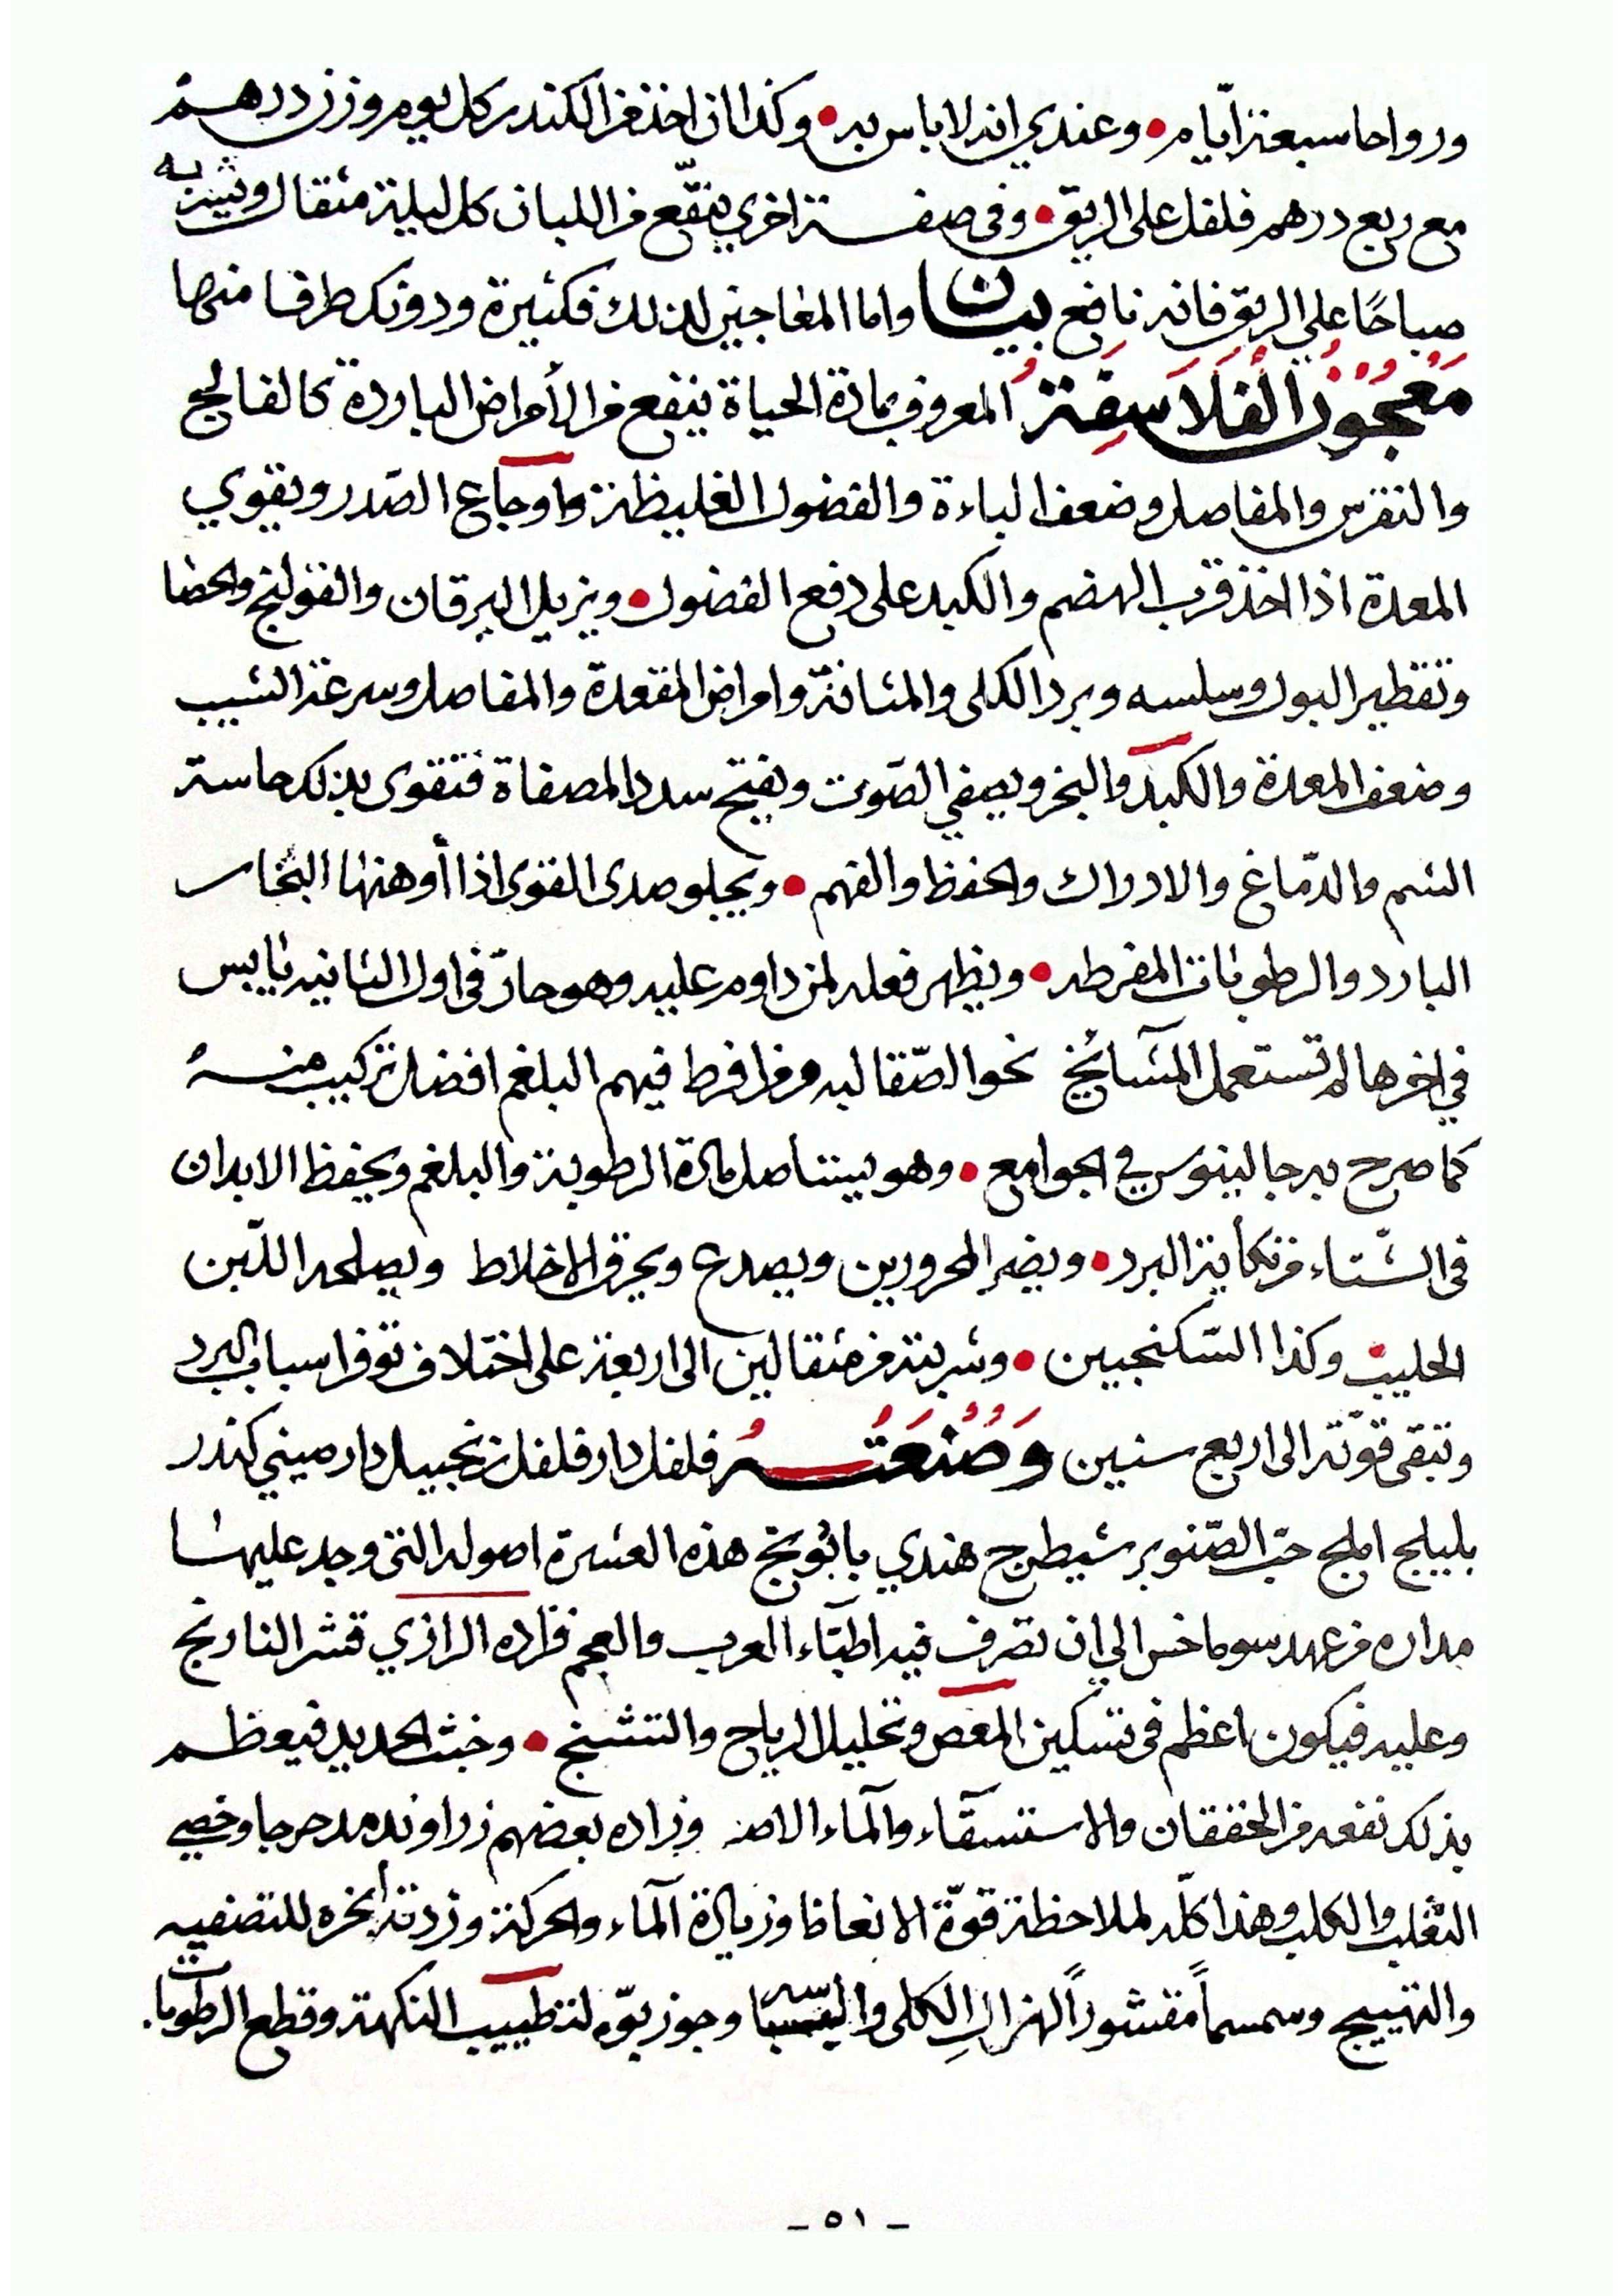 ورواحا سبعة ايّام • وعندي انه لا باس به • وكذا ان اخذ من الكندر كل يوم وزن درهم
مع ربع درهم فلفل على الريق • وفى صفة اخري ينقّع من اللبان كل ليلة مثقال ويشربه
صباحًا علي الريق فانه نافع بيان واما المعاجين لذلك فكثيرة ودونك طرفا منها
مَعْجُونُ الْفَلَاسِفَةُ المعروف بمادة الحياة ينفع من الأمراض الباردة كالفالج
والنقرس والمفاصل وضعف الباءة والفضول الغليظة واوجاع الصّدر ويقوي
المعدة اذا اخذ قرب الهضم والكبد على دفع الفضول • ويزيل اليرقان والقولنج والحصا
وتقطير البول وسلسه وبرد الكلى والمثانة وامراض المقعدة والمفاصل وسرعة الشيب
وضعف المعدة والكبد والبخر ويصفي الصّوت ويفتح سدد المصفاة فتقوى بذلك حاسة
الشم والدّماغ والادراك والحفظ والفهم • ويجلو صدى القوى اذا أوهنها البخار
البارد والرطوبات المفرطه • ويظهر فعله لمن داوم عليه وهو حارّ فى اول الثانيه يابس
في اخرها لم تستعمل المشائخ نحو الصّقالبه ومن افرط فيهم البلغم افضل تركيب منه
كما صرح به جالينوس في الجوامع • وهو يستاصل مادة الرطوبة والبلغم ويحفظ الابدان
فى الشّتاء من نكأية البرد • ويضر المحرورين ويصدع ويحرق الاخلاط ويصلحه اللّبن
الحليب وكذا السّكنجبين • وشربته من مثقالين الى اربعة على اختلاف توفر اسباب البرد
وتبقى قوّته الى اربع سنين وَصُنْعَتُهُ فلفل دار فلفل زنجبيل دار صيني كندر
بليلج املج حبّ الصّنوبر شيطرج هندي بابونج هذه العشرة اصوله التى وجد عليها
مداره من عهد سوماخس الي ان تصرف فيه اطبّاء العرب والعجم فزاده الرازي قشر النارنج
وعليه فيكون اعظم فى تسكين المغص وتحليل الرياح والتشنج • وخبث الحديد فيعظم
بذلك نفعه من الخفقان والاستسقآء والمآء الاصفر وزاده بعضهم زراوند مدحرجا وخصي
الثعلب والكلب وهذا كلّه لملاحظة قوّة الانعاظ وزيادة المآء والحركة وزدته أنجره للتصفيه
والتهييج وسمسماً مقشوراً لهزال الكلى و وجوز بوّه لتطييب النكهة وقطع الرطوبات.
- ٥١ -